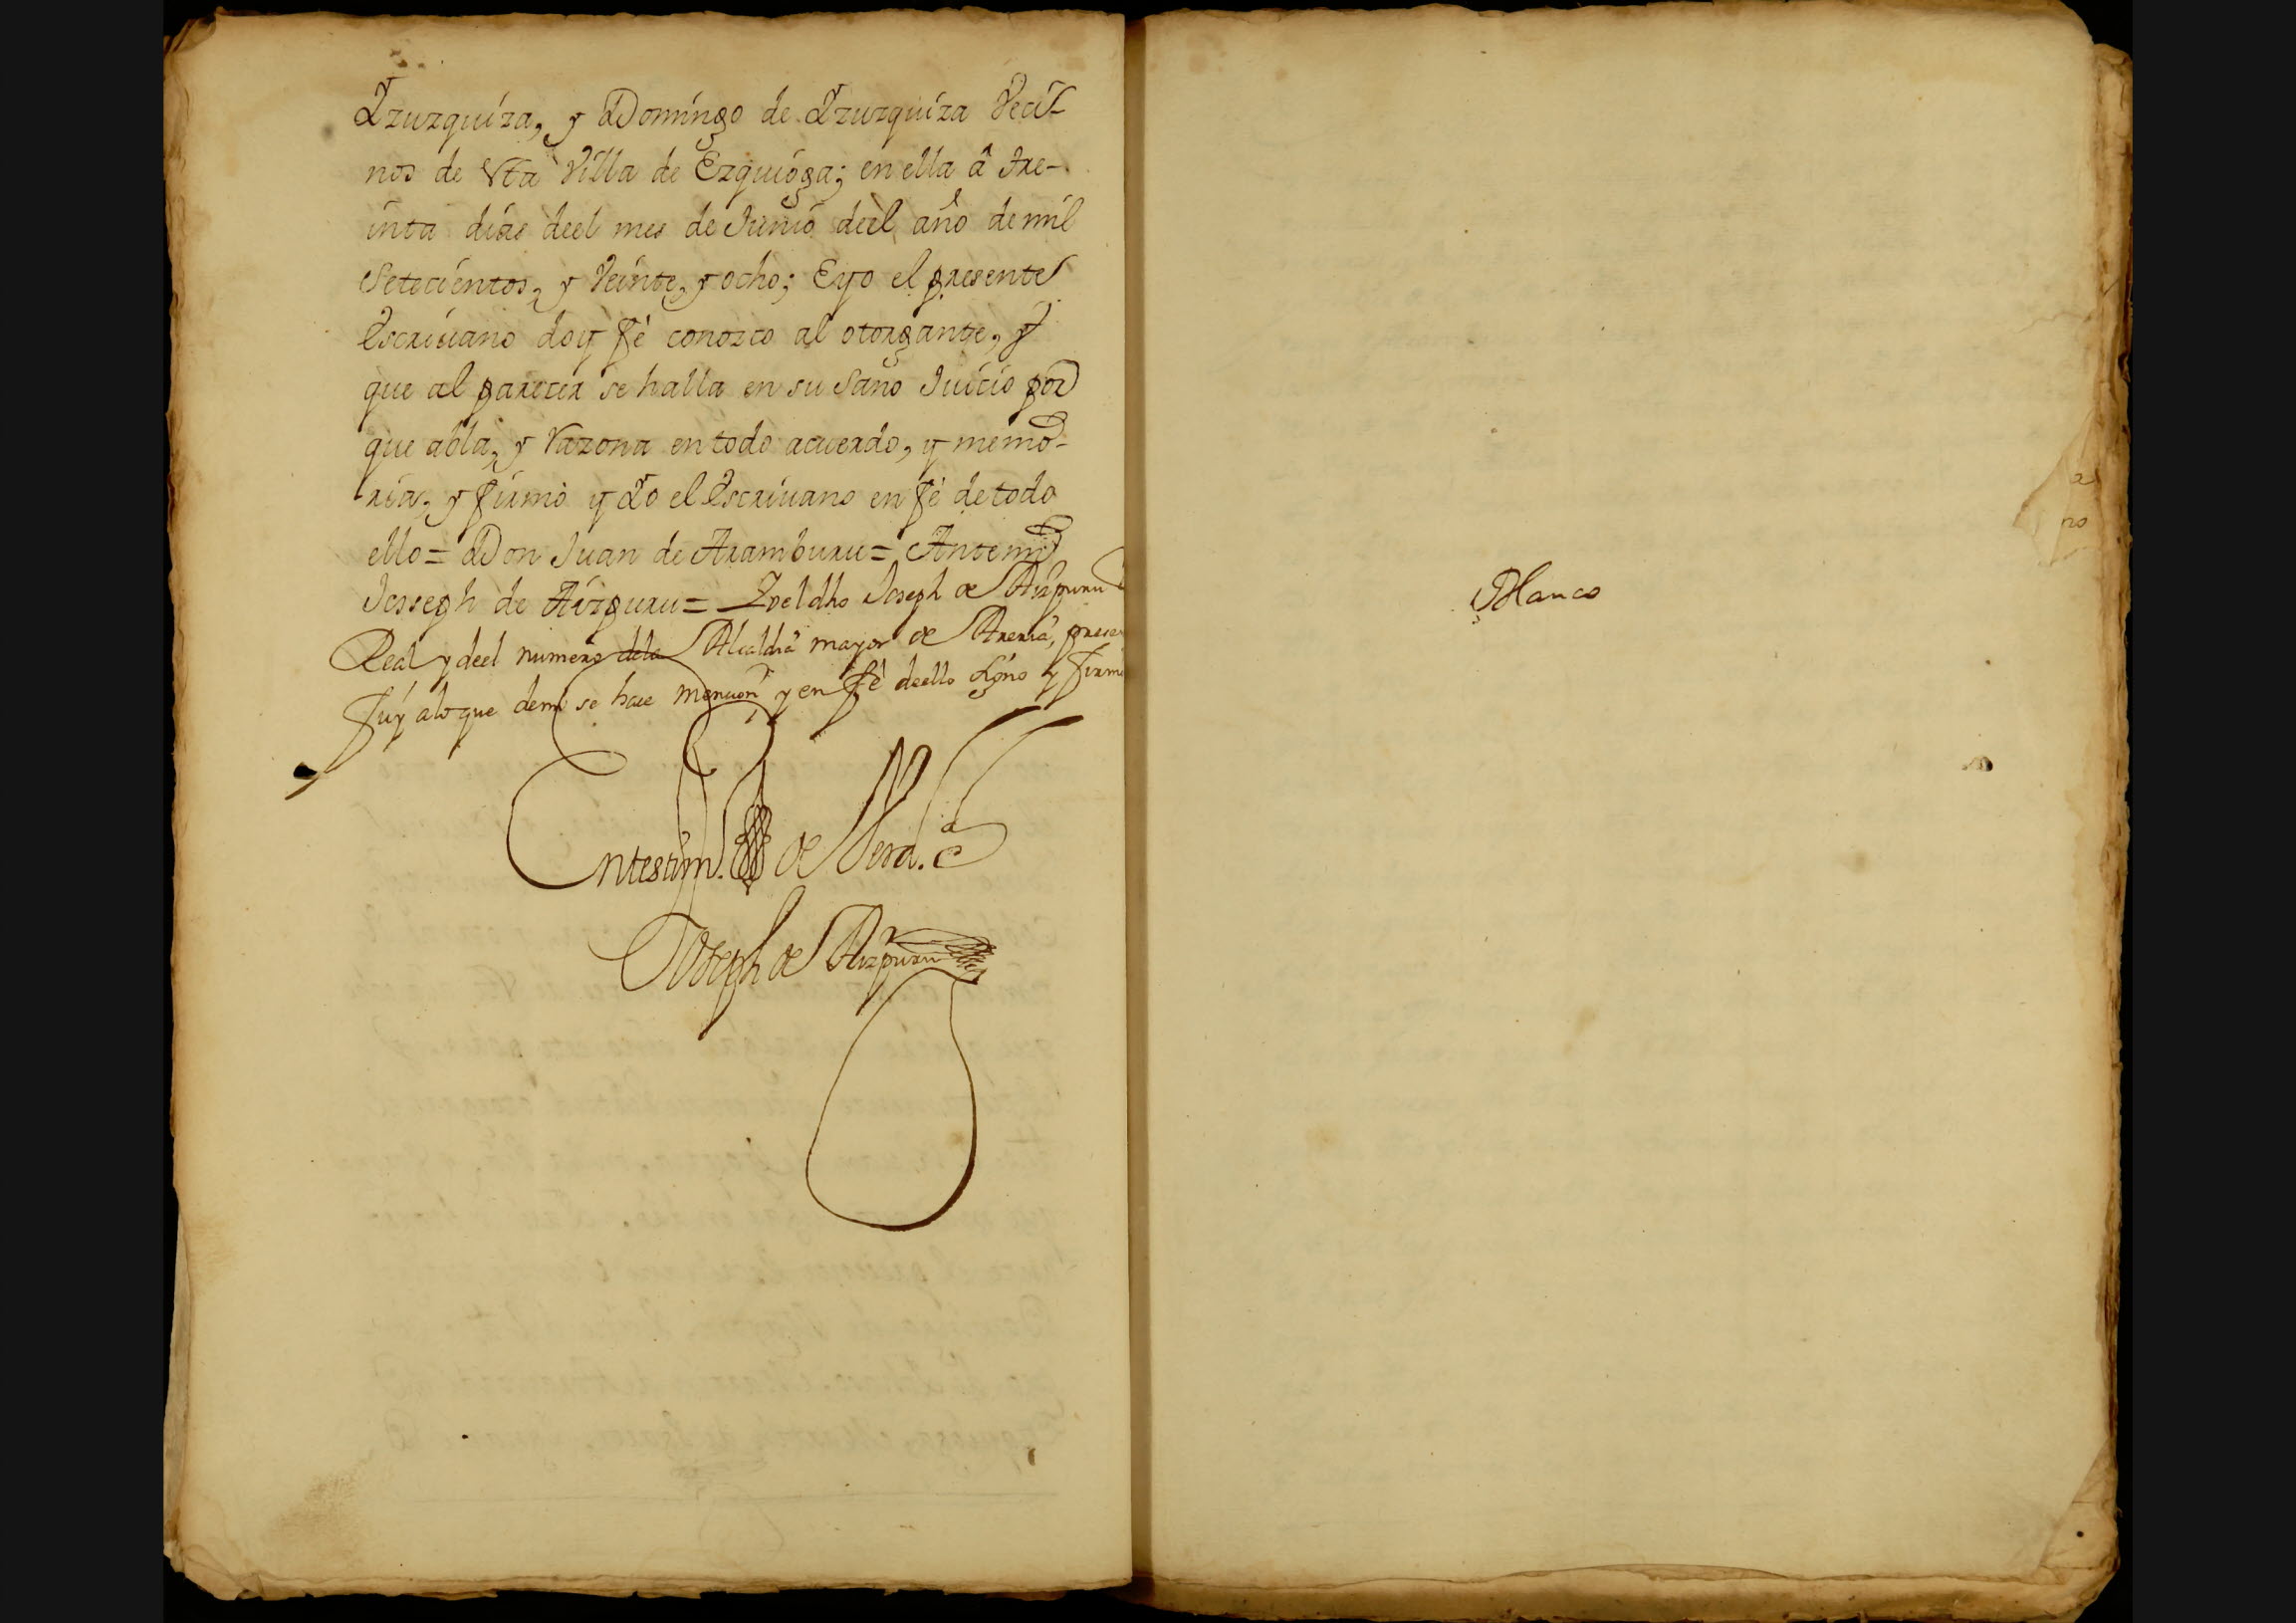 Yzurquiza, y Domingo de Yzurquiza Veci-
nos de esta Villa de Ezquioga; en ella â tre-
inta dias deel mes de Junio deel año de mil
Setecientos, y Veinte, y ocho; E yo el presente
escriuano doy fè conozco al otorgante, y
que al parecer se halla en su Sano Juicio por
que abla, y razona en todo acuerdo, y memo-
ria, y firmò y Yo el escriuano en fè de todo
ello = Don Juan de Aramburu = Antemi
Josseph de Aizpuru = Yo el dho Joseph de Aizpuru
Real y deel numero dela Alcaldia mayor de Areria, presen
fuy alo que demi se hace mencion y en fè deello signo y firme
En testim.o de Verd.
Joseph de Aizpuru
Blanco
a
no